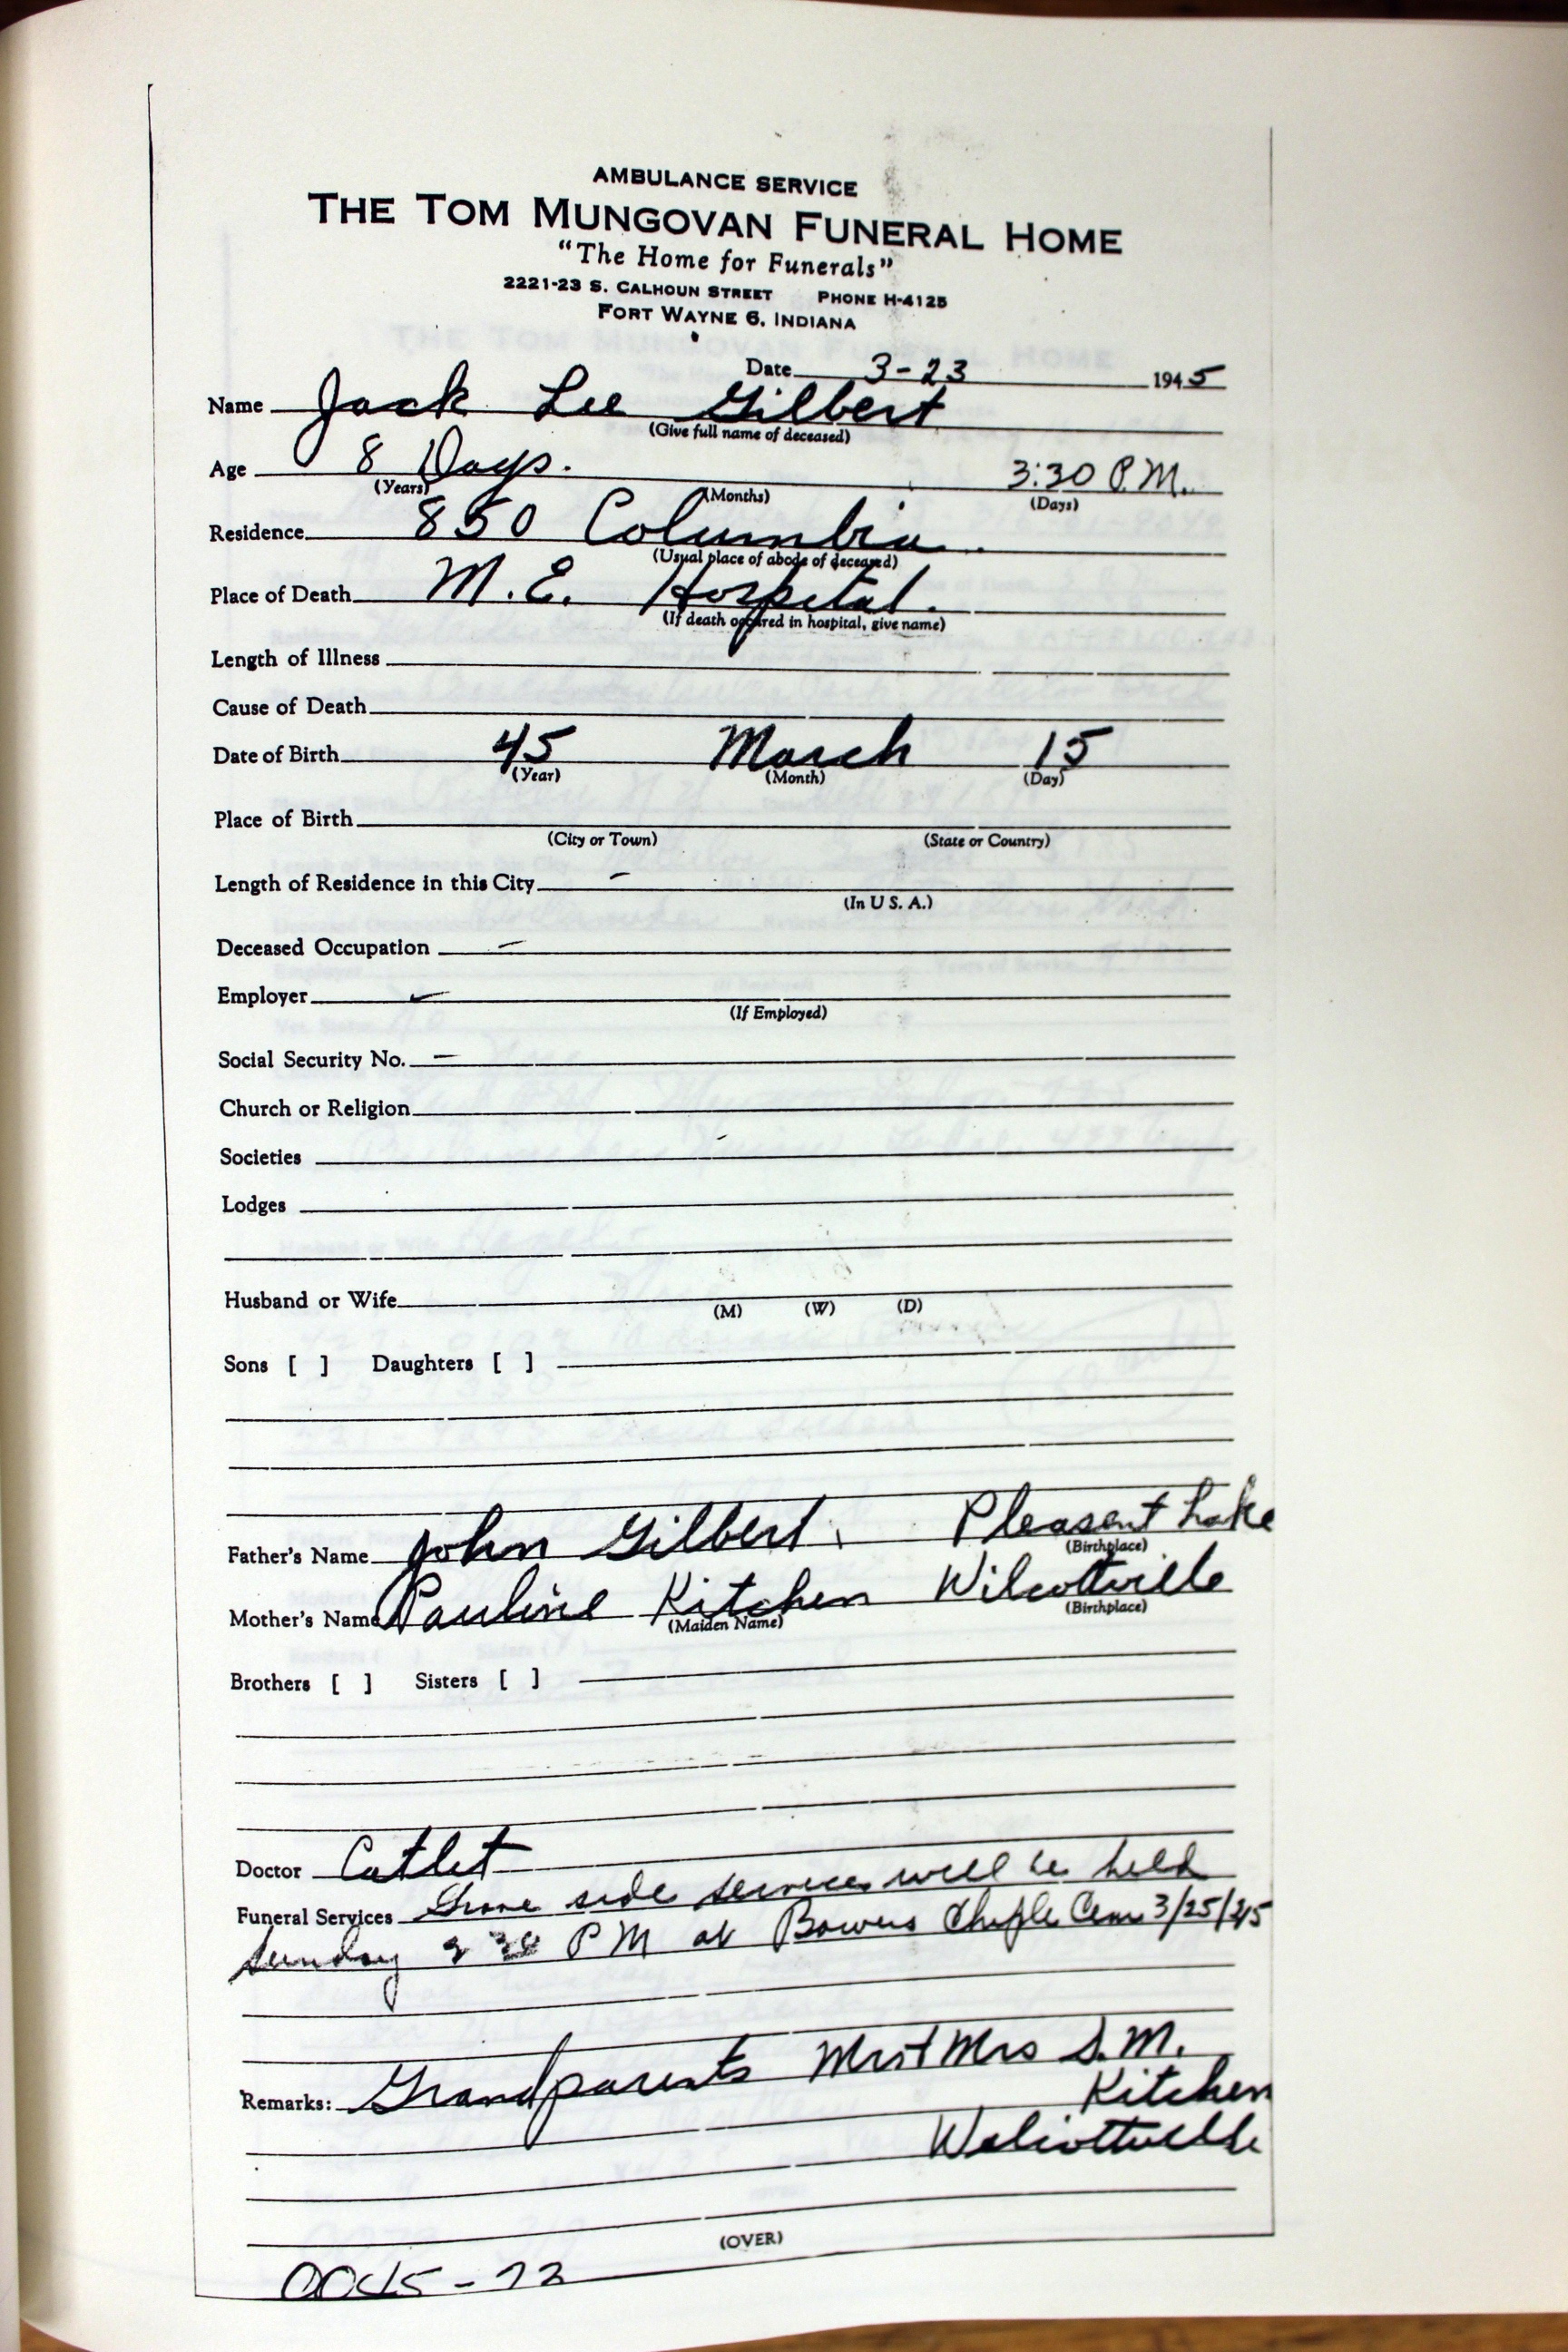 AMBULANCE SERVICE
THE TOM MUNGOVAN FUNERAL HOME
"The Home for Funerals"
2221-23 S. CALHOUN STREET PHONE H-4125
FORT WAYNE 6, INDIANA
Date 3-23 1945
Name Jack Lee Gilbert
(Give full name of deceased)
Age 8 Days. 3:30 P.M.
(Years) (Months) (Days)
Residence 850 Columbia
(Usual place of abode of deceased)
Place of Death M.E. Hospital.
(If death occured in hospital, give name)
Length of Illness
Cause of Death
Date of Birth 45 March 15
(Year) (Month) (Day)
Place of Birth
(City or Town) (State or Country)
Length of Residence in this City -
(In U S. A.)
Deceased Occupation -
Employer
(If Employed)
Social Security No. -
Church or Religion
Societies
Lodges
Husband or Wife
(M) (W) (D)
Sons [ ] Daughters [ ]
Father's Name John Gilbert Pleasent Lake
(Birthplace)
Mother's Name Pauline Kitchen Wilcottville
(Maiden Name) (Birthplace)
Brothers [ ] Sisters [ ]
Doctor Catlet
Funeral Services Grave side services will be held
Sunday PM at Bowers Cem 3/25/45
Remarks: Grandparents Mr & Mrs S.M.
Kitchen
Wolcottville
(OVER)